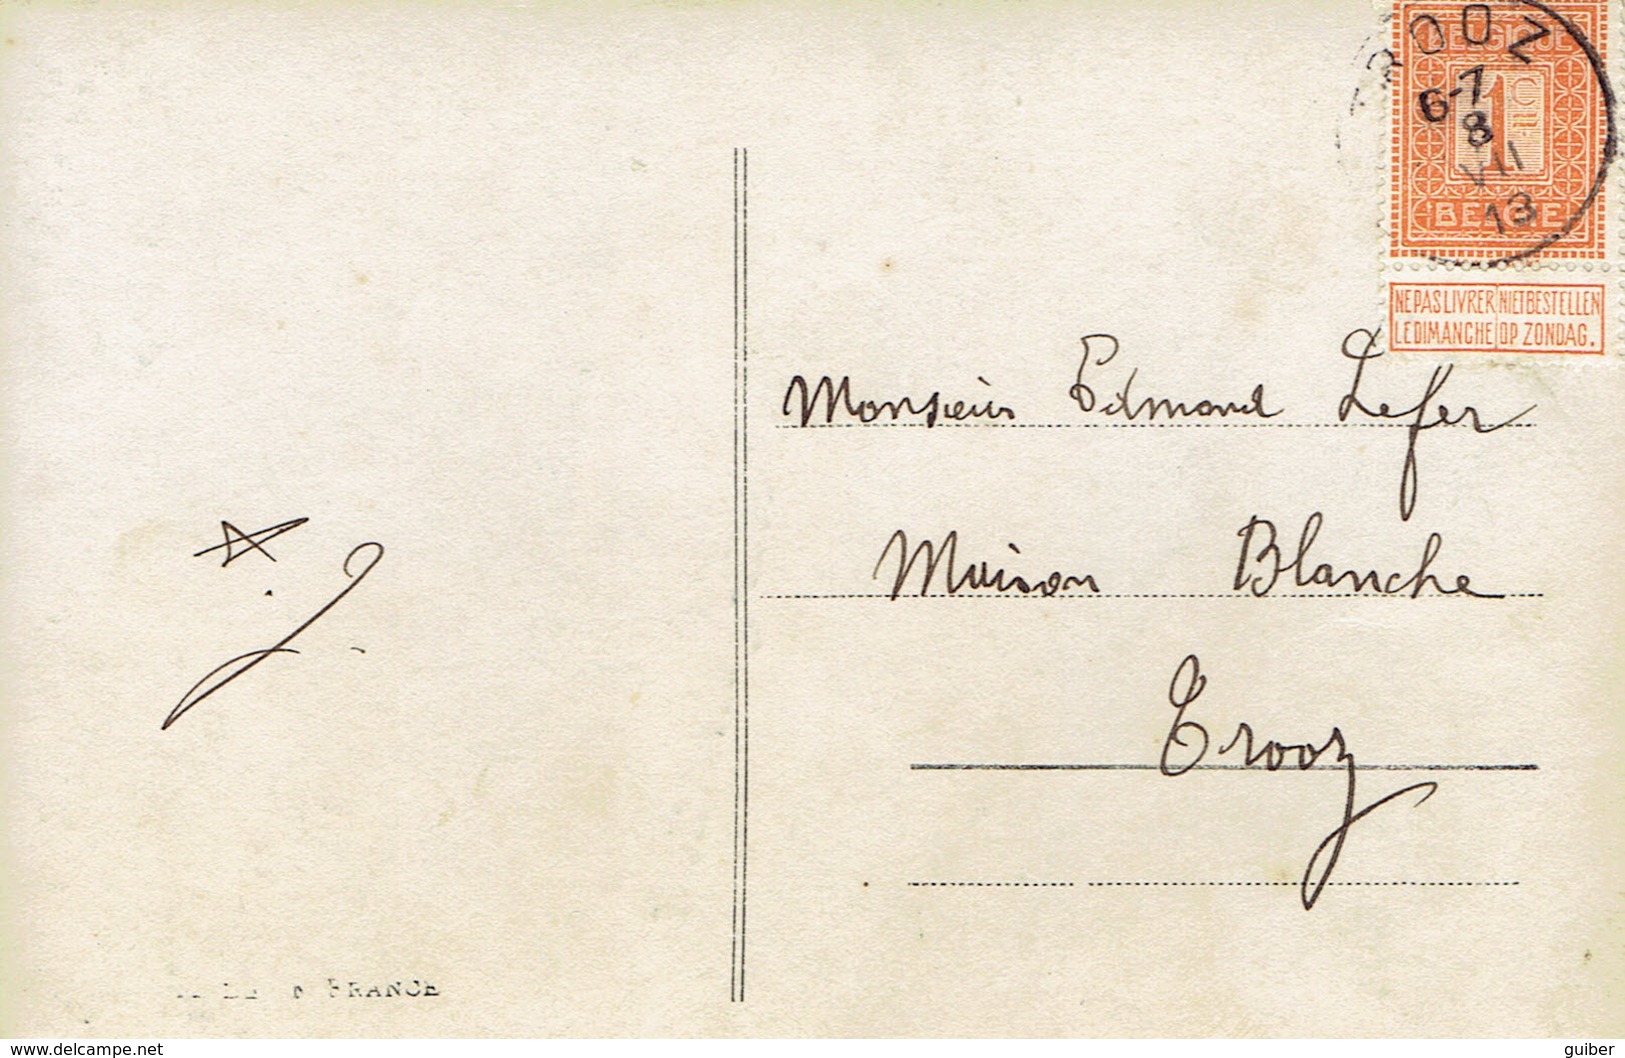 TROOZ
BELGIQUE
6-7
8
VII
13
1C
BELGIE
NE PAS LIVRER NIET BESTELLEN
LE DIMANCHE OP ZONDAG.
Monsieur Edmond Lefer
Maison Blanche
Trooz
FRANCE
www.delcampe.net
guiber